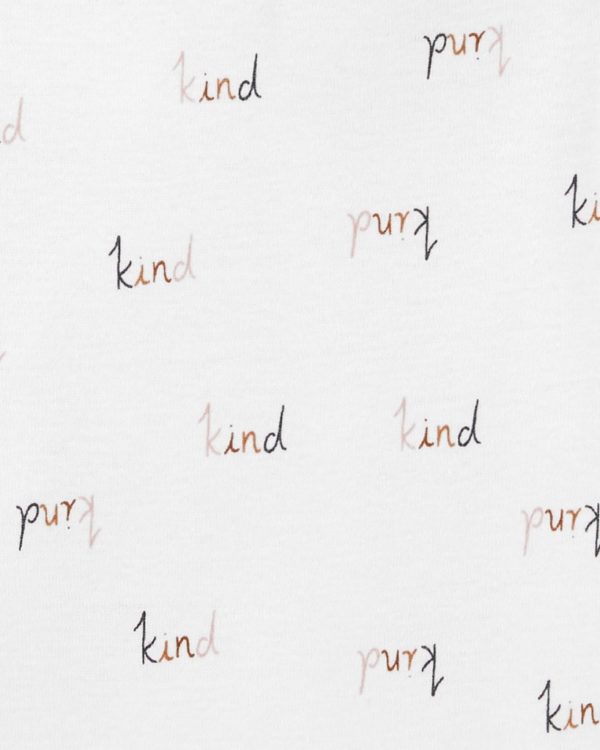 kind
kind
d
ki
kind
kind
kind
kind
kind
kind
kind
kind
kind
kin